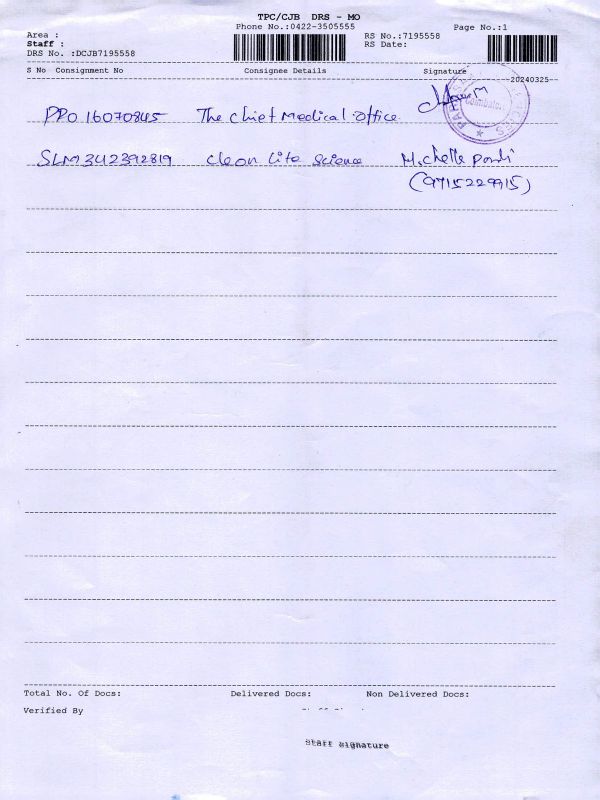 TPC/CJB DRS - MO
Phone No.:0422-3505555 Page No.:1
Area : RS No.:7195558
Staff : RS Date:
DRS No. :DCJB7195558
S No Consignment No Consignee Details Signature
20240325
PPO 16070845 The Chief Medical office
SLM342392819 Cleon Lite Science Michelle
(9715229915)
Total No. Of Docs: Delivered Docs: Non Delivered Docs:
Verified By
Staff Signature